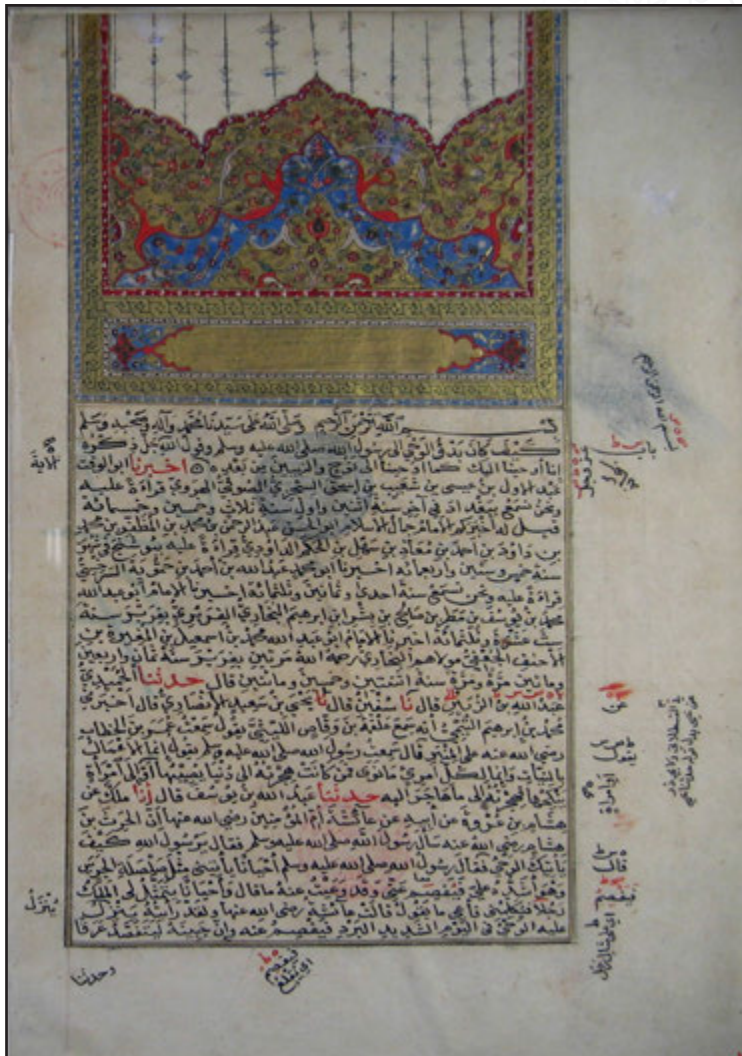 بسم الله الرحمن الرحيم وصلى الله على سيدنا محمد وآله وصحبه وسلم
كيف كان بدؤ الوحي الى رسول الله صلى الله عليه وسلم وقول الله جل ذكره
إنا أوحينا اليك كما أوحينا الى نوح والنبيين من بعده اخبرنا ابو الوقت
عبد الاول بن عيسى بن شعيب بن إسحق السجزي الصوفي الهروي قراءة عليه
ونحن نسمع ببغداد في آخر سنة اثنين واول سنة ثلاث وخمسين وخمسمائة
قيل له أخبركم الامام جمال الاسلام ابو الحسن عبد الرحمن بن محمد بن المظفر بن محمد
بن داود بن أحمد بن معاذ بن سهل بن الحكم الداودي قراءة عليه ببوشنج
سنة خمس وستين واربعمائه اخبرنا ابو محمد عبد الله بن أحمد بن حمويه السرخسي
قراءة عليه ونحن نسمع سنة احدى وثمانين وثلثمائة اخبرنا الامام ابو عبد الله
محمد بن يوسف بن مطر بن صالح بن بشر بن ابرهيم البخاري الفربري بفربر سنة
ست عشرة وثلثمائة اخبرنا الامام ابو عبد الله محمد بن اسمعيل بن المغيرة بن
الأحنف الجعفي مولاهم البخاري رحمه الله مرتين بفربر سنة ثمان واربعين
ومائتين مرة ومرة سنة اثنتين وخمسين ومائتين قال حدثنا الحميدي
عبد الله بن الزبير قال نا سفين قال نا يحيى بن سعيد الأنصاري قال أخبرني
محمد بن إبرهيم التيمي أنه سمع علقمة بن وقاص الليثي يقول سمعت عمر بن الخطاب
رضي الله عنه على المنبر قال سمعت رسول الله صلى الله عليه وسلم يقول إنما الأعمال
بالنيات وإنما لكل امرئ ما نوى فمن كانت هجرته الى دنيا يصيبها أو إلى امرأة
ينكحها فهجرته إلى ما هاجر اليه حدثنا عبد الله بن يوسف قال أنا ملك عن
هشام بن عروة عن أبيه عن عائشة أم المؤمنين رضي الله عنها أن الحرث بن
هشام رضي الله عنه سأل رسول الله صلى الله عليه وسلم فقال يا رسول الله كيف
يأتيك الوحي فقال رسول الله صلى الله عليه وسلم أحيانا يأتيني مثل صلصلة الجرس
وهو أشده علي فيفصم عني وقد وعيت عنه ما قال وأحيانا يتمثل لي الملك
رجلا فيكلمني فأعي ما يقول قالت عائشة رضي الله عنها ولقد رأيته ينزل
عليه الوحي في اليوم الشديد البرد فيفصم عنه وإن جبينه ليتفصد عرقا
الآية
ينزل
وحدثنا